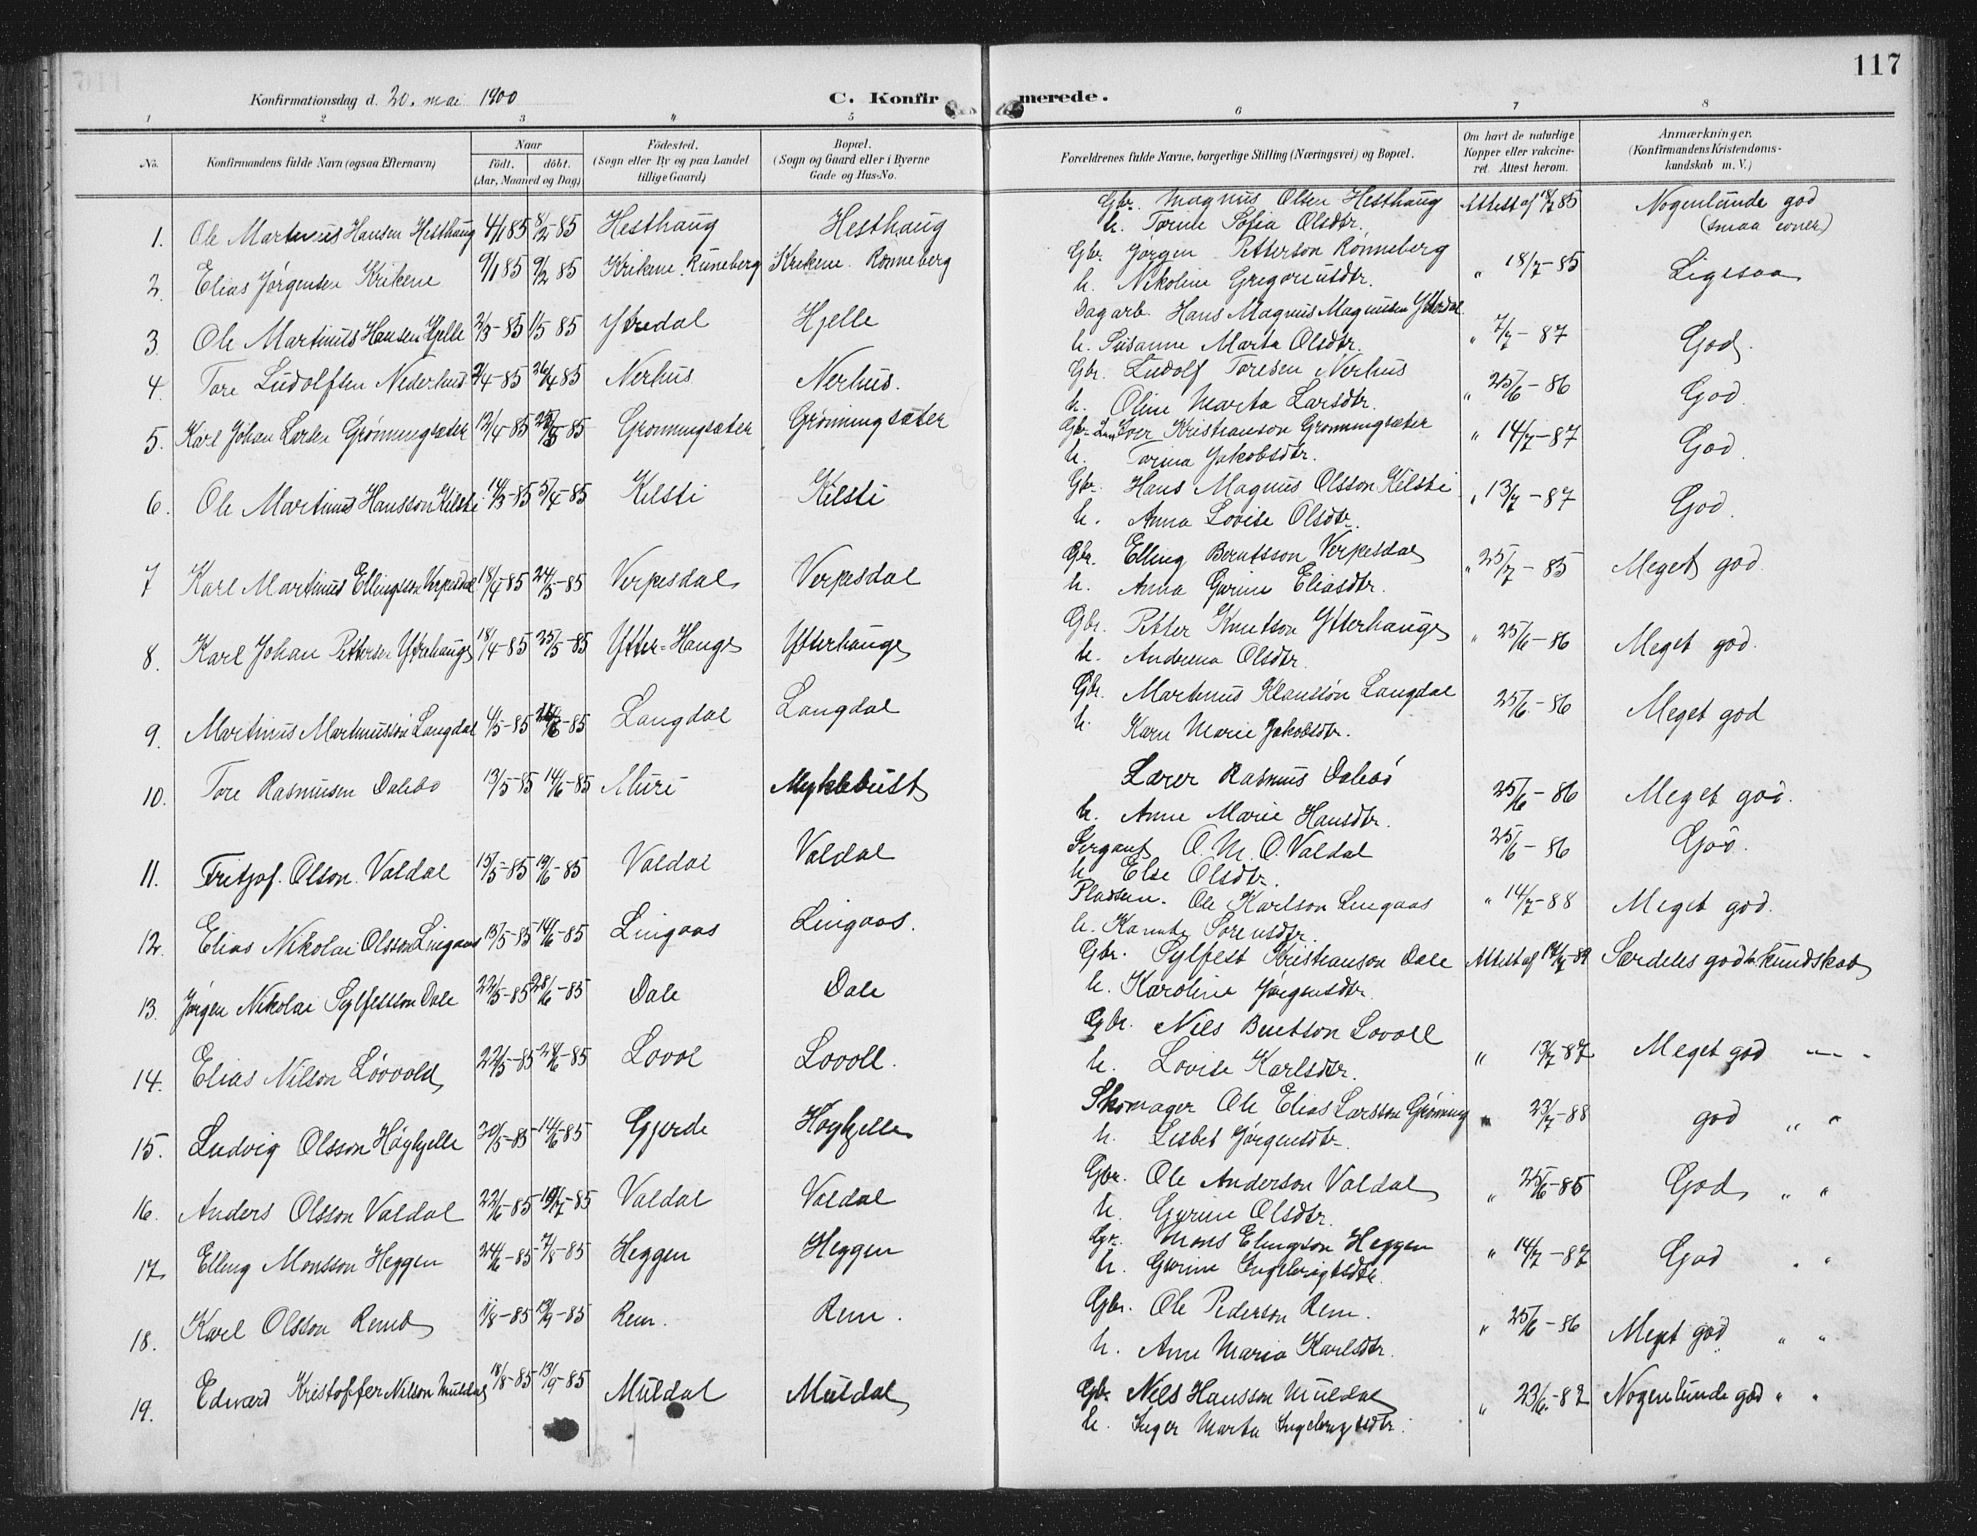 117
Konfirmationsdag d. 20. mai 1900
C. Konfirmerede.
1 2 3 4 5 6 7 8
No. Konfirmandens fulde Navn (ogsaa Efternavn) Naar Födt. döbt. (Aar, Maaned og Dag) Födested. (Sogn eller By og paa Landet tillige Gaard) Bopæl. (Sogn og Gaard eller i Byerne Gade og Hus-No. Forældrenes fulde Navne, borgerlige Stilling (Næringsvei) og Bopæl. Om havt de naturlige Kopper eller vakcineret. Attest herom. Anmærkninger. (Konfirmandens Kristendomskundskab m. V.)
1. Ole Martinus Hansen Hesthaug 4/1 85 8/2-85 Hesthaug Hesthaug Gbr. Magnus Olsen Hesthaug Attest af 18/7 85 Nogenlunde god
h. Torine Sofia Olsdtr. (smaa evner)
2. Elias Jørgensen Krikene 9/1 85 9/2 85 Krikene. Runeberg Krikene. Ronneberg Gbr. Jørgen Petterson Ronneberg " 18/7-85 Ligesaa
h. Nikoline Gregoriusdtr.
3. Ole Martinus Hansen Hjelle 2/3-85 1/5 85 Ytredal Hjelle Dagarb. Hans Magnus Magnusen Ytterdal " 7/7-87 God.
h. Susanne Marta Olsdtr.
4. Tore Ludolfsen Nederhus 2/4-85 26/4 85 Nerhus Nerhus. Gbr. Ludolf Toresen Nerhus " 25/6-86 God
h. Oline Marta Larsdtr.
5. Karl Johan Larsen Grønningsæter 12/4-85 85 Gronningsæter Grønningsæter Gbr. Kristianson Gronningsæter " 14/7-87 God.
h. Torina Jakobsdtr.
6. Ole Martinus Hansson Kilsti 14/3-85 5/4-85 Kilsti Kilsti Gbr. Hans Magnus Olsson Kilsti " 13/7-87 God.
h. Anna Lovise Olsdtr.
7 Karl Martinus Ellingsson Verpesdal 18/4-85 24/5-85 Verpesdal Verpesdal Gbr. Elling Berntsson Verpesdal " 25/7-85 Meget god
h. Anna Gurine Eliasdtr.
8. Karl Johan Pettersen Ytrehauge 18/4-85 25/5-85 Ytter-Hauge Ytterhauge Gbr. Petter Knutson Ytterhauge " 25/6-86 Meget god.
h. Andrena Olsdtr.
9. Martinus Martinusson Langdal 4/5-85 85 Langdal Langdal Gbr. Martinus Klausson Langdal 25/6-86 Meget god
h. Karn Marie Jakobsdtr.
10. Tore Rasmusen Dalebø 13/5-85 14/6-85 Muri Myklebust Lærer Rasmus Dalebø 25/6-86 Meget god.
h. Anne Marie Hansdtr.
11. Fritjof. Olson. Valdal 15/5-85 19/6-85 Valdal Valdal Sergant O. M. O. Valdal 25/6-86 God.
h. Else Olsdtr.
12. Elias Nikolai Olsson Lingaas 13/5-85 14/6-85 Lingaas Lingaas. Pladsm. Ole Karlson Lingaas " 14/7-88 Meget god.
h. Sorensdtr.
13. Jørgen Nikolai Sylfesson Dale 22/5-85 28/6-85 Dale Dale Gbr. Sylfest Kristianson Dale Attest af 14/7-89 Særdeles god Kundskab
h. Karoline Jørgensdtr.
14. Elias Nilson Løvvold 22/5-85 28/6-85 Lovol Lovoll. Gbr. Nils Berntson Lovoll " 13/7-87 Meget god
h. Lovise Karlsdtr.
15. Ludvig Olsson Høghjelle 20/5-85 14/6-85 Gjerde Høghjelle Skomager Ole Elias Larsson Grøning " 23/7-88 god " "
h. Lisbet Jørgensdtr.
16. Anders Olsson Valdal 22/6-85 19/7-85 Valdal Valdal Gbr. Ole Anderson Valdal " 25/6-85 God " "
h. Gurine Olsdtr.
17. Elling Monsson Heggen 24/6-85 7/8-85 Heggen Heggen Gbr. Mons Elingson Heggen " 14/7-87 God " "
h. Gurine Ingebrigtsdtr.
18. Karl Olsson Remb 1/8-85 13/9-85 Rem. Rem. Gbr. Ole Pederson Rem. " 25/6-86 Meget god " "
h. Ane Maria Karlsdtr.
19. Edvard Kristoffer Nilson Muldal 18/8-85 13/9-85 Muldal Muldal Gbr. Nils Hansson Muldal " 23/6-82 Nogenlunde god " "
h. Inger Marta